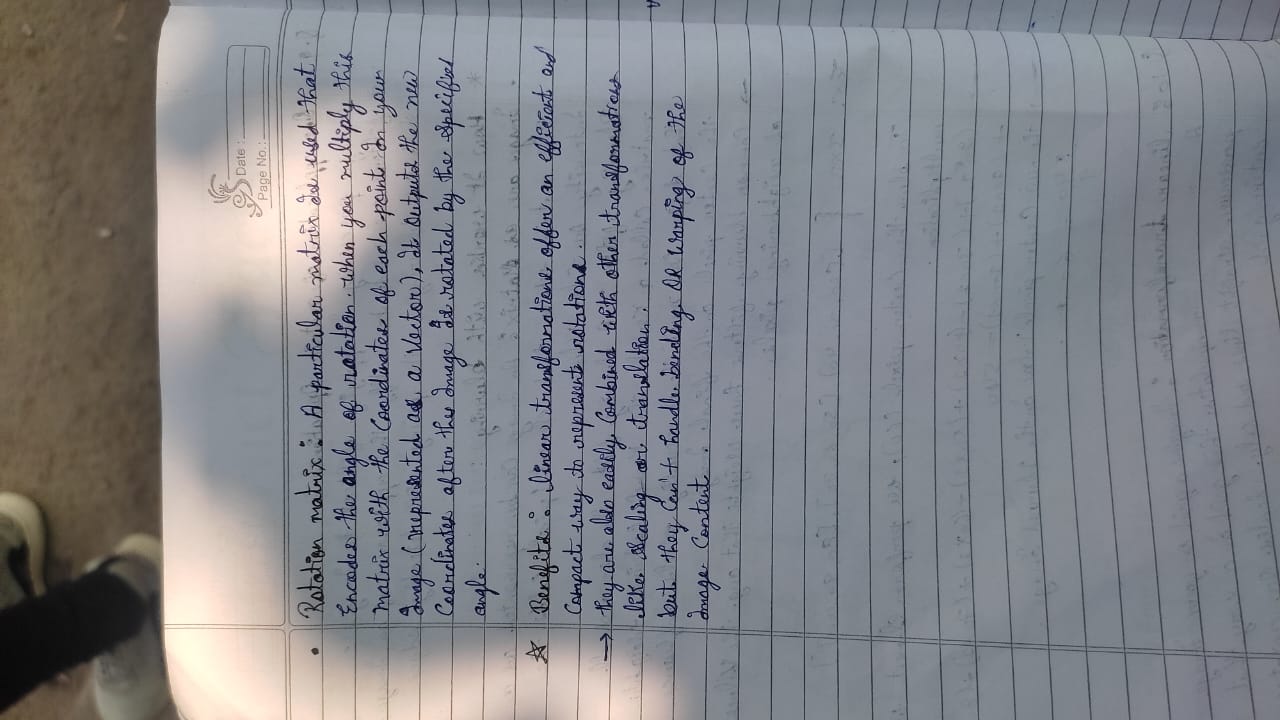 Date :
Page No. :
• Rotation matrix : A particular matrix is used that
Encodes the angle of rotation. when you multiply this
matrix with the Coordinates of each point in your
Image (represented as a vector), it outputs the new
Coordinates after the image is rotated by the specified
angle.
☆ Benefits : linear transformations offer an efficient and
Compact way to represent rotations.
→ they are also easily Combined with other transformations
like scaling or translation.
but they can't handle bending OR warping of the
image content.